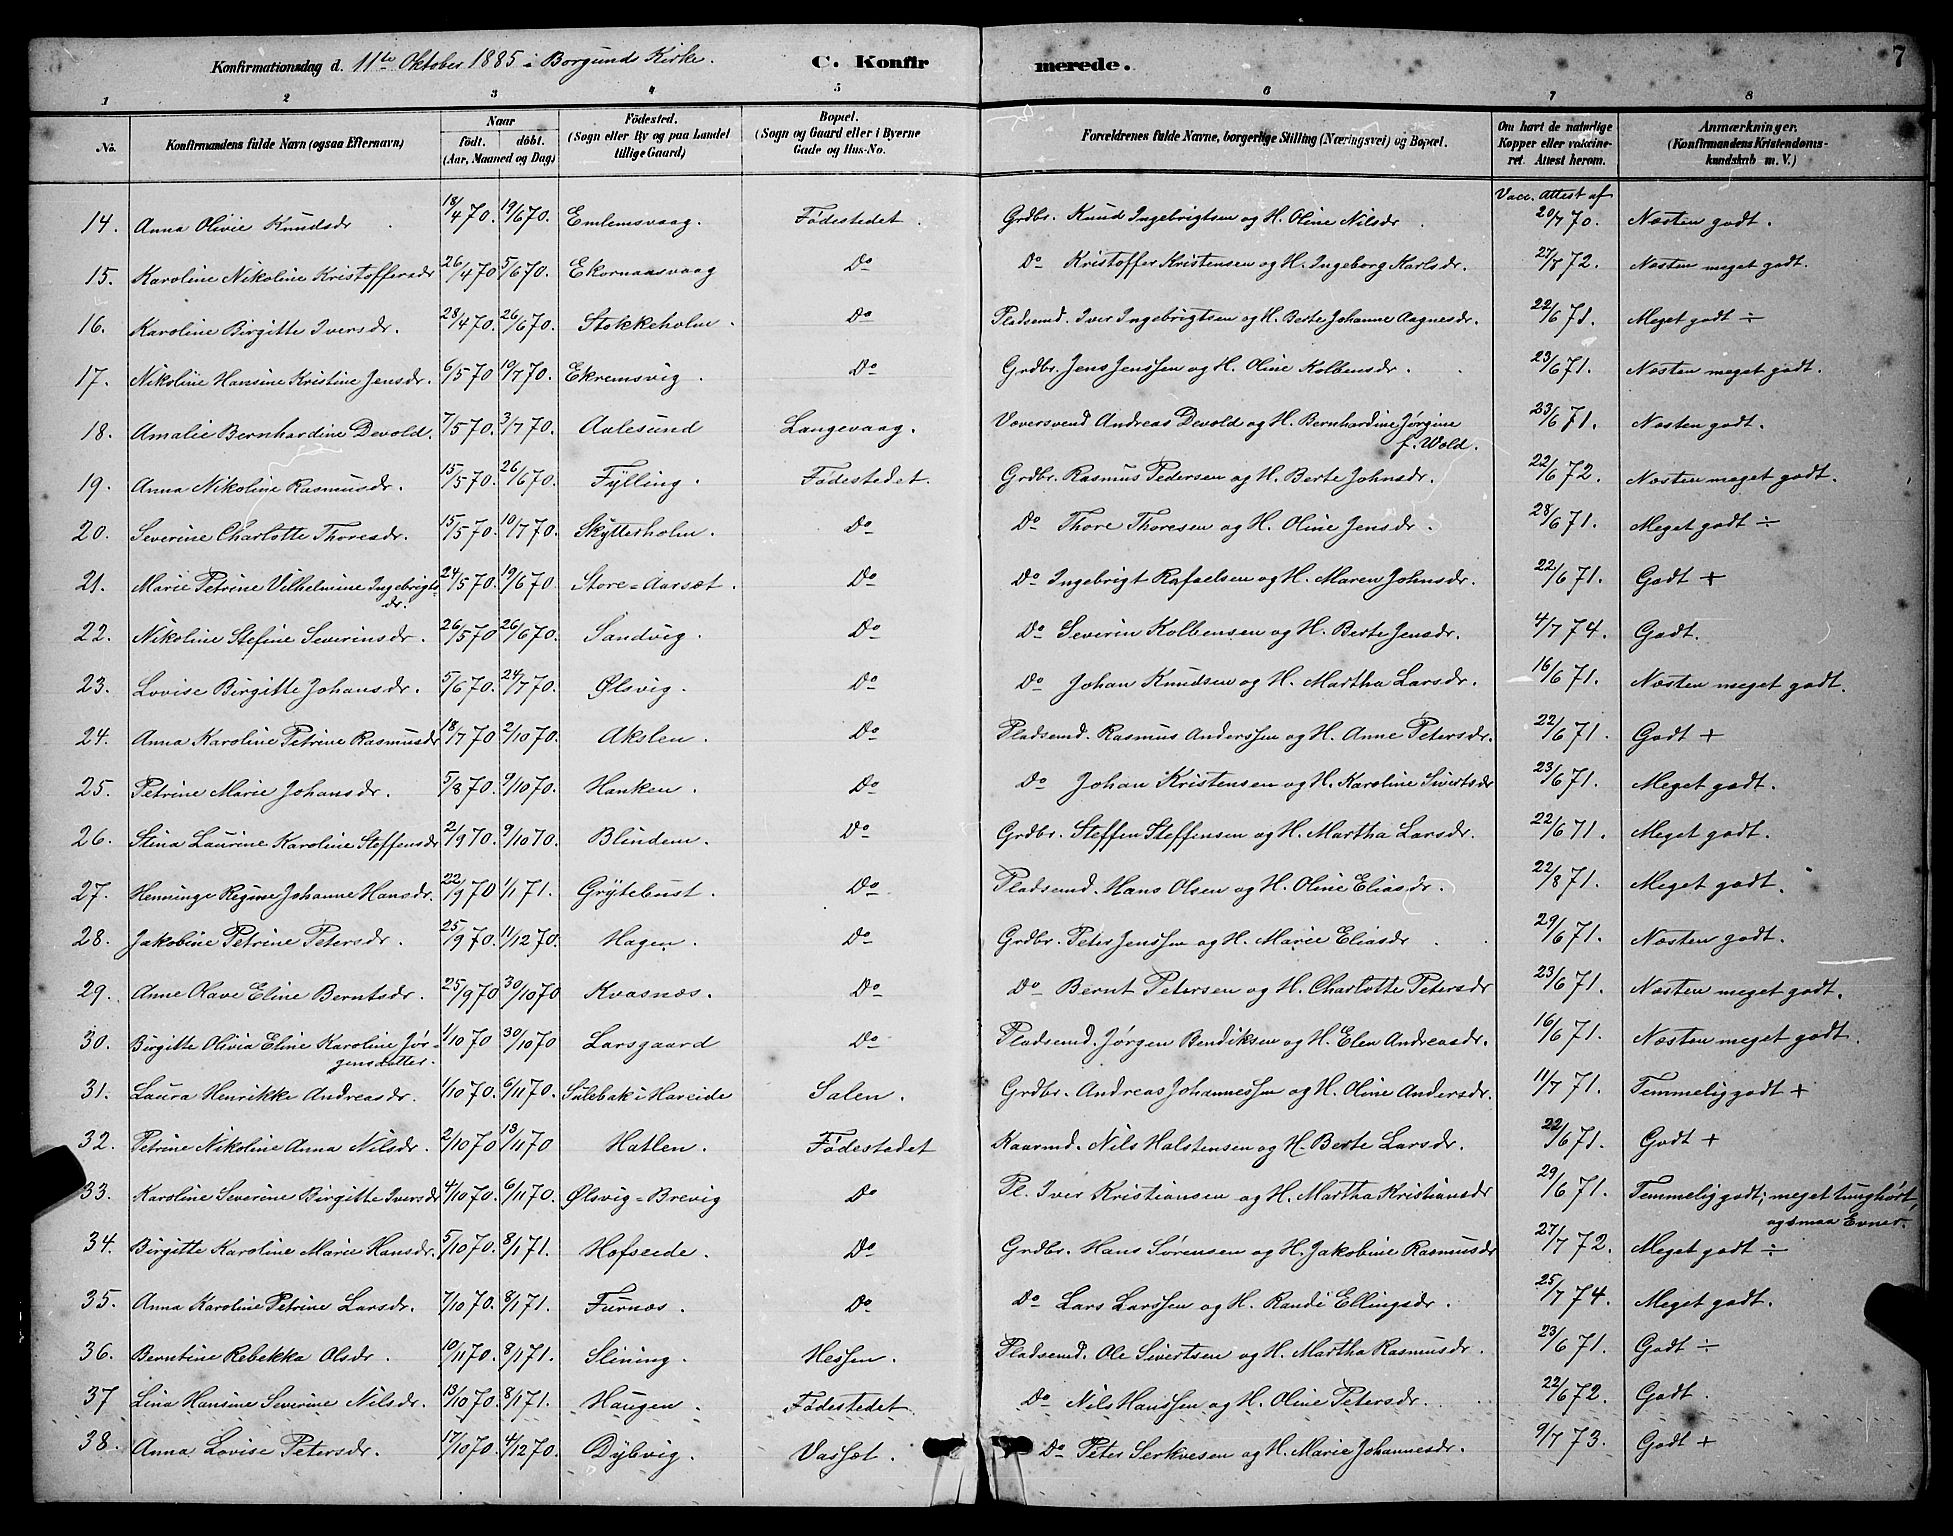 Konfirmationsdag d. 11te Oktober 1885 i Borgunds Kirke. C. Konfirmerede. 7
1 2 3 4 5 6 7 8
No. Konfirmandens fulde Navn (ogsaa Efternavn) Naar født. døbt. (Aar, Maaned og Dag) Fødested. (Sogn eller By og paa Landet tillige Gaard) Bopæl. (Sogn og Gaard eller i Byerne Gade og Hus-No. Forældrenes fulde Navne, borgerlige Stilling (Næringsvei) og Bopæl. Om havt de naturlige Kopper eller vaccineret. Attest herom. Anmærkninger. (Konfirmandens Kristendomskundskab m. V.)
Vacc. Attest af
14. Anna Olivie Knudsdr 18/4 70. 19/6 70. Emlemsvaag. Fødestedet. Grdbr. Knud Ingebrigtsen og H. Oline Nilsdr 20/7 70. Næsten godt.
15. Karoline Nikoline Kristoffersdr 26/4 70 5/6 70. Ekornaasvaag Do Do Kristoffer Kristensen og H. Ingeborg Karlsdr. 27/8 72. Næsten meget godt.
16. Karoline Birgitte Iversdr. 28/4 70. 26/6 70. Stokkeholm. Do Pladsemd. Iver Ingebrigtsen og H. Berte Johanne Aagnesdr. 22/6 71. Meget godt ÷
17. Nikoline Hansine Kristine Jensdr. 6/5 70 10/7 70. Ekremsvig. Do Grdbr. Jens Jenssen og H. Oline Kolbensdr. 23/6 71. Næsten meget godt.
18. Amalie Bernhardine Devold. 7/5 70. 3/7 70. Aalesund Langevaag. Væversvend Andreas Devold og H. Bernhardine Jørgine f. Wold. 23/6 71. Næsten godt.
19. Anna Nikoline Rasmusdr. 15/5 70. 26/6 70. Fylling. Fødestedet. Grdbr. Rasmus Pedersen og H. Berte Johnsdr. 22/6 72. Næsten meget godt.
20. Severine Charlotte Thoresdr. 15/5 70. 10/7 70. Skytterholm. Do Do Thore Thoresen og H. Oline Jensdr. 28/6 71. Meget godt ÷
21. Marie Petrine Vilhelmine Ingebrigtsdr. 24/5 70. 19/6 70. Store-Aarsæt. Do Do Ingebrigt Rafaelsen og H. Maren Johnsdr. 22/6 71. Godt +
22. Nikoline Stefine Severinsdr. 26/5 70 26/6 70. Sandvig. Do Do Severin Kolbensen og H. Berte Jensdr. 4/7 74. Godt.
23. Lovise Birgitte Johansdr. 5/6 70. 24/7 70. Ølsvig. Do Do Johan Knudsen og H. Martha Larsdr. 16/6 71. Næsten meget godt.
24. Anna Karoline Petrine Rasmusdr 18/7 70 2/10 70. Akslen. Do Pladsemd. Rasmus Anderssen og H. Anne Petersdr. 22/6 71. Godt +
25. Petrine Marie Johansdr. 5/8 70. 9/10 70. Hanken. Do Do Johan Kristensen og H. Karoline Sivertsdr 23/6 71. Meget godt.
26. Stina Laurine Karoline Steffensdr 2/9 70. 9/10 70. Blindem. Do Grdbr. Steffen Steffensen og H. Martha Larsdr. 22/6 71. Meget godt.
27. Henninge Regine Johanne Hansdr. 22/9 70 1/1 71. Grytebust. Do Pladsemd. Hans Olsen og H. Oline Eliasdr. 22/8 71. Meget godt.
28. Jakobine Petrine Petersdr. 25/9 70. 11/12 70. Hagen. Do Grdbr. Peter Jenssen og H. Marie Eliasdr 29/6 71. Næsten godt.
29. Anne Olave Eline Berntsdr. 25/9 70 30/10 70 Kvasnæs. Do Do Bernt Petersen og H. Charlotte Petersdr 23/6 71. Næsten meget godt.
30. Birgitte Olivia Eline Karoline Jørgensdatter. 1/10 70 30/10 70 Larsgaard Do Pladsemd. Jørgen Bendiksen og H. Elen Andreasdr. 16/6 71. Næsten meget godt.
31. Laura Henrikke Andreasdr. 1/10 70. 6/11 70. Sulebak i Hareide Salen. Grdbr. Andreas Johannessen og H. Oline Andersdr. 11/7 71. Temmelig godt +
32. Petrine Nikoline Anna Nilsdr. 2/10 70 13/11 70 Hatlen. Fødestedet Kaarmd. Nils Halstensen og H. Berte Larsdr. 22/6 71. Godt +
33. Karoline Severine Birgitte Iversdr 4/10 70. 6/11 70. Ølsvig-Brevig Do Pl. Iver Kristiansen og H. Martha Kristiansdr 29/6 71. Temmelig godt; meget tunghørt, ogsmaa Evner.
34. Birgitte Karoline Marie Hansdr. 5/10 70. 8/1 71. Hofseide. Do Grdbr. Hans Sørensen og H. Jakobine Rasmusdr 27/7 72. Meget godt ÷
35. Anna Karoline Petrine Larsdr. 7/10 70. 8/1 71. Furnæs. Do Do Lars Larssen og H. Randi Ellingsdr. 25/7 74. Meget godt.
36. Berntine Rebekka Olsdr. 10/11 70. 8/1 71. Slining. Hessen. Pladsemd. Ole Sivertsen og H. Martha Rasmusdr. 23/6 71. Godt ÷
37 Lina Hansine Severine Nilsdr. 13/10 70. 8/1 71. Haugen. Fødestedet. Do Nils Hanssen og H. Oline Petersdr. 22/6 72. Godt.
38. Anna Lovise Petersdr. 17/10 70. 4/12 70. Dybvig. Vassæt. Do Peter Serkvesen og H. Marie Johannesdr. 9/7 73. Godt +